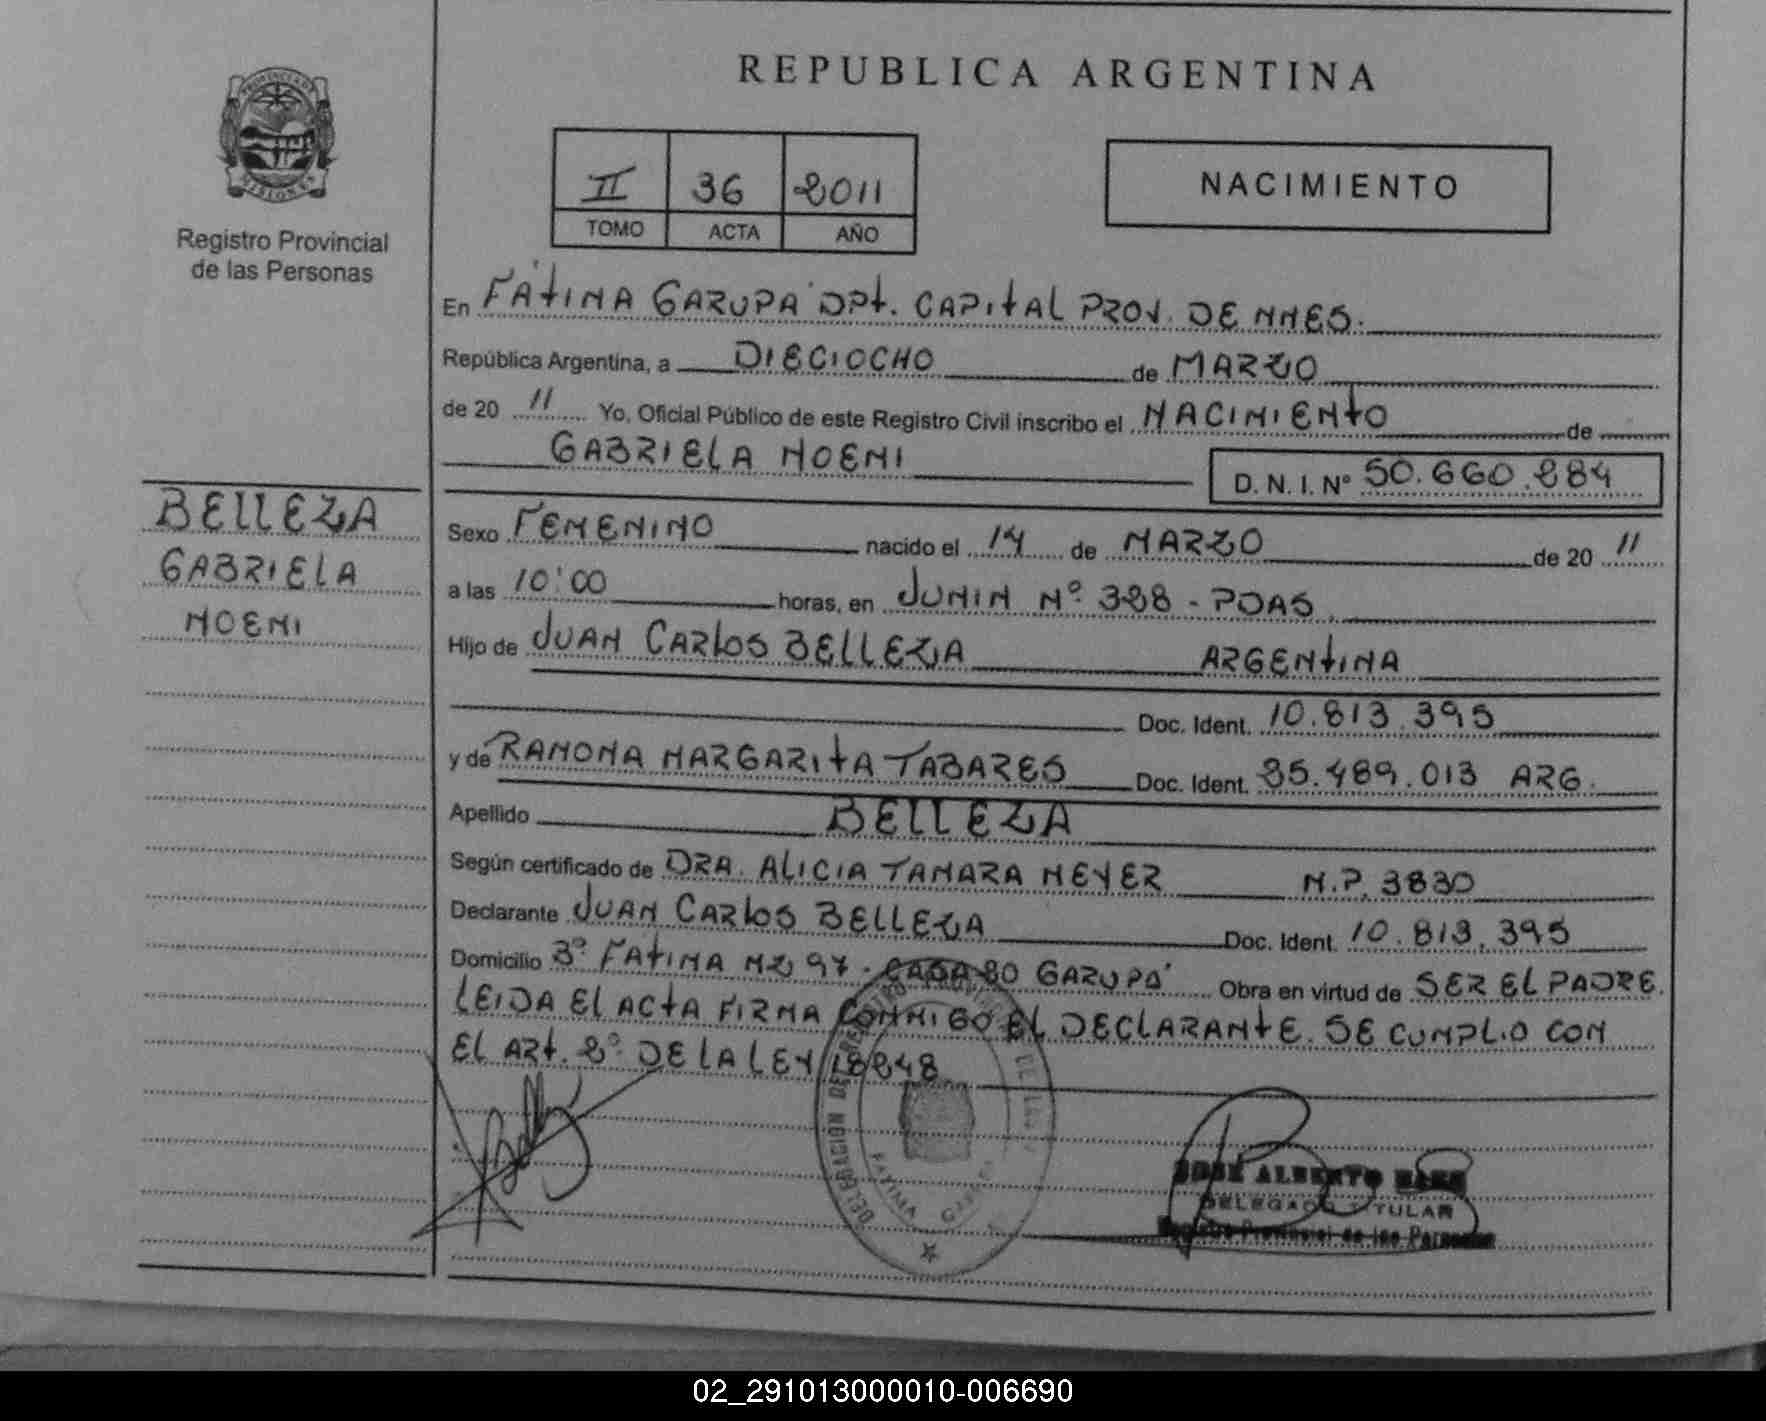 REPUBLICA ARGENTINA
PROVINCIA DE
MISIONES
Registro Provincial
de las Personas
II 36 2011
TOMO ACTA AÑO
NACIMIENTO
En FÁTIMA GARUPÁ DPt. CAPITAL PROV. DE MNES.
República Argentina, a DIECIOCHO de MARZO
de 20 11 Yo, Oficial Público de este Registro Civil inscribo el NACIMIENTO de
GABRIELA NOEMI D. N. I. Nº 50.660.284
BELLEZA
GABRIELA
NOEMI
Sexo FEMENINO nacido el 14 de MARZO de 20 11
a las 10:00 horas, en JUNIN Nº 328 - PDAS
Hijo de JUAN CARLOS BELLEZA ARGENTINA
Doc. Ident. 10.813.395
y de RAMONA MARGARITA TABARES Doc. Ident. 35.489.013 ARG.
Apellido BELLEZA
Según certificado de DRA. ALICIA TAMARA MEYER M.P. 3830
Declarante JUAN CARLOS BELLEZA Doc. Ident. 10.813.395
Domicilio Bº FATIMA MZ 97 - CASA 20 GARUPÁ Obra en virtud de SER EL PADRE.
LEIDA EL ACTA FIRMA CONMIGO EL DECLARANTE. SE CUMPLIO CON
EL ART. 2º DE LA LEY 18248
DELEGACION DEL REGISTRO PROVINCIAL DE LAS
FATIMA GARUPA
JOSE ALBERTO
DELEGADO TITULAR
Registro Provincial de las Personas
02_291013000010-006690